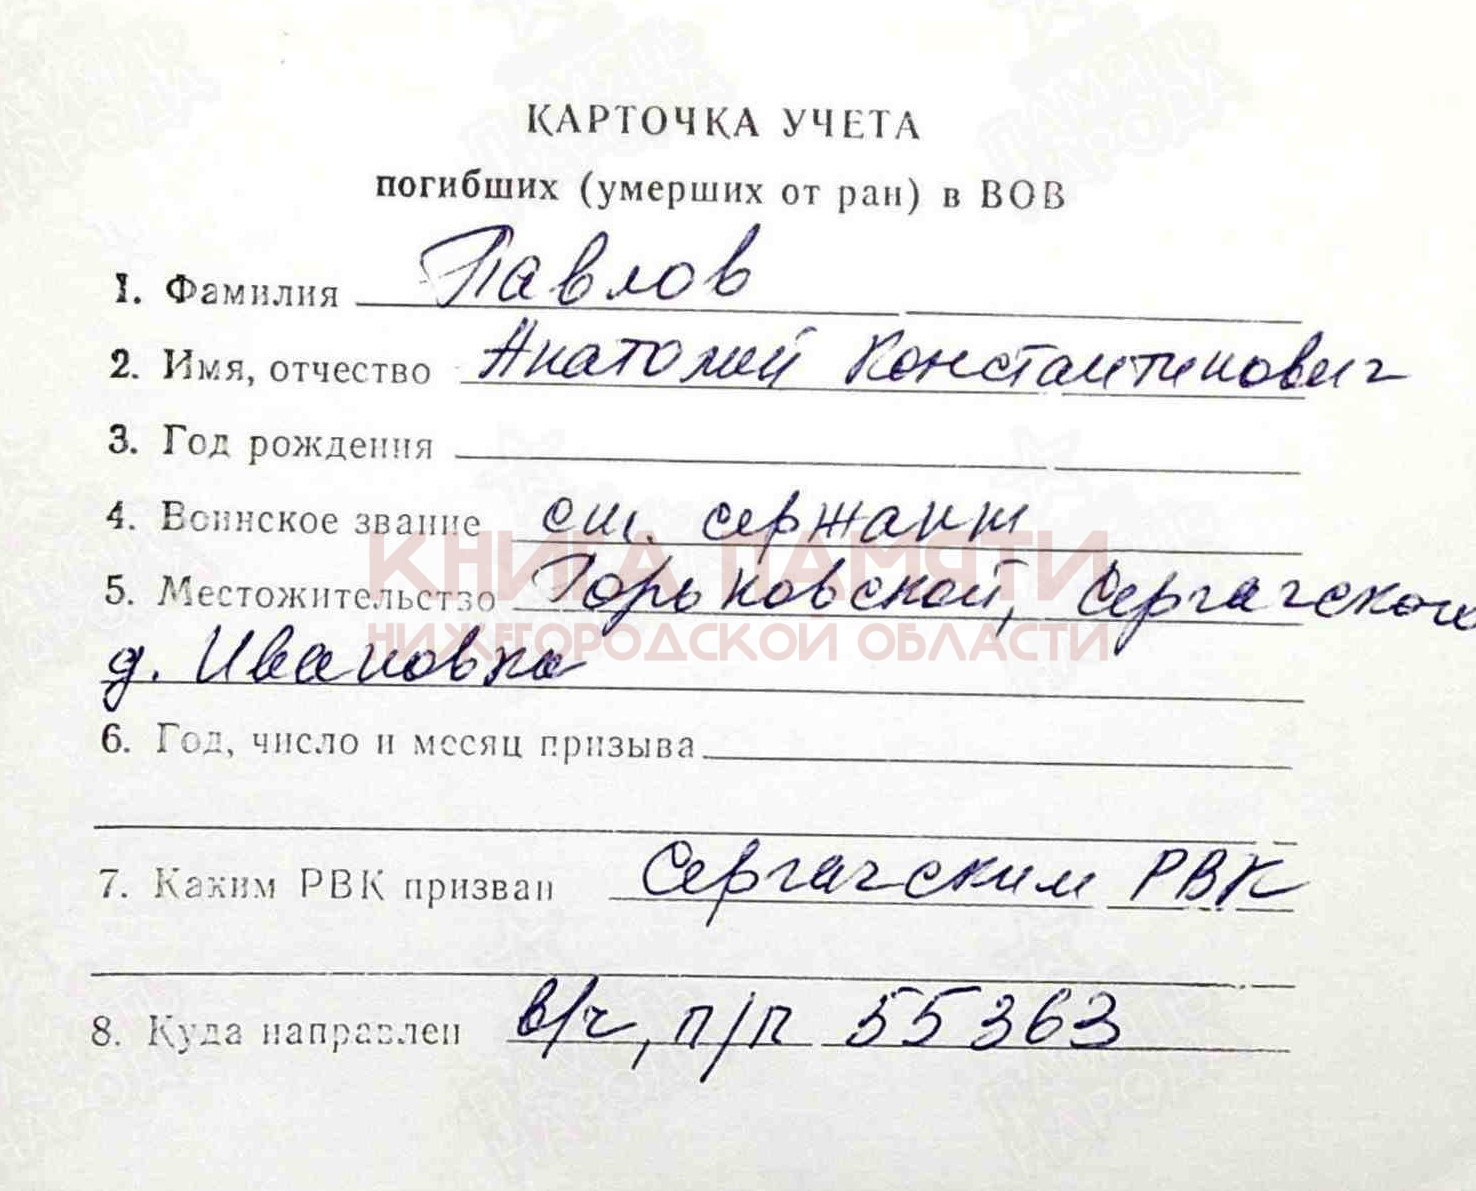 КАРТОЧКА УЧЕТА
погибших (умерших от ран) в ВОВ
1. Фамилия Павлов
2. Имя, отчество Анатолий Константинович
3. Год рождения
4. Воинское звание ст. сержант
КНИГА ПАМЯТИ
5. Местожительство Горьковской, Сергачского
НИЖЕГОРОДСКОЙ ОБЛАСТИ
д. Ивановка
6. Год, число и месяц призыва
7. Каким РВК призван Сергачским РВК
8. Куда направлен в/ч, п/п 55363